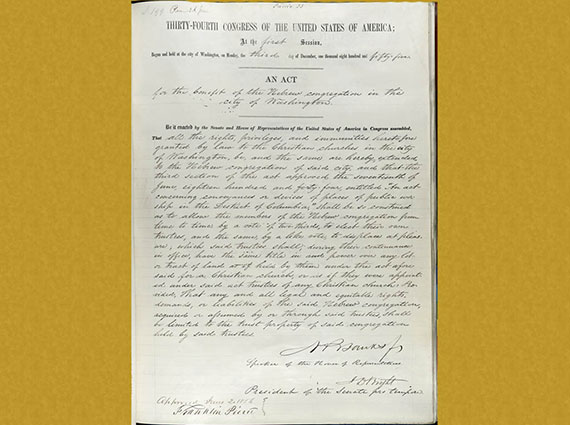 THIRTY-FOURTH CONGRESS OF THE UNITED STATES OF AMERICA;
At the first Session,
Begun and held at the city of Washington, on Monday, the third day of December, one thousand eight hundred and fifty-five
AN ACT
for the benefit of the Hebrew congregation in the
city of Washington.
Be it enacted by the Senate and House of Representatives of the United States of America in Congress assembled,
That all the rights, privileges, and immunities heretofore
granted by law to the Christian churches in the city
of Washington, be, and the same are hereby, extended
to the Hebrew congregation of said city and that the
third section of the act approved the seventeenth of
June, eighteen hundred and forty four, entitled "An act
concerning conveyances or devises of places of public wor
ship in the District of Columbia," shall be so construed
as to allow the members of the Hebrew congregation from
time to time by a vote of two thirds, to elect their own
trustees, and the same by a like vote to displace at pleas
ure, which said trustees shall, during their continuance
in office, have the same title in and power over any lot
or tract of land held by them under this act afore
said for a Christian church, or as if they were appoint
ed under said act trustees of any Christian church: Pro
vided, That any and all legal and equitable rights,
demands, or liabilities of the said Hebrew congregation,
acquired or assumed by or through said trustees shall
be limited to the trust property of said congregation
held by said trustees
N P Banks Jr
Speaker of the House of Representatives
J D Bright
President of the Senate pro tempore
Approved June 2. 1856
Franklin Pierce